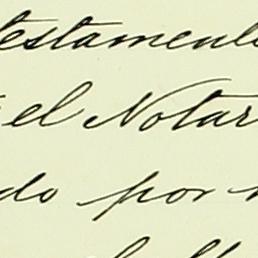 testamento
el Notar
do por